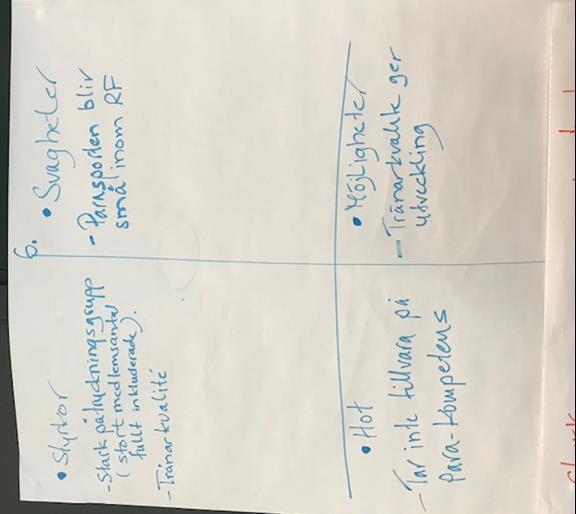 6.
• Styrkor
- Stark påtryckningsgrupp
( stort medlemsantal
fullt inkluderade).
- Tränarkvalité
• Svagheter
- Parasporten blir
små inom RF
• Hot
- Tar inte tillvara på
Para-kompetens
• Möjligheter
- Tränarkvalité ger
utveckling